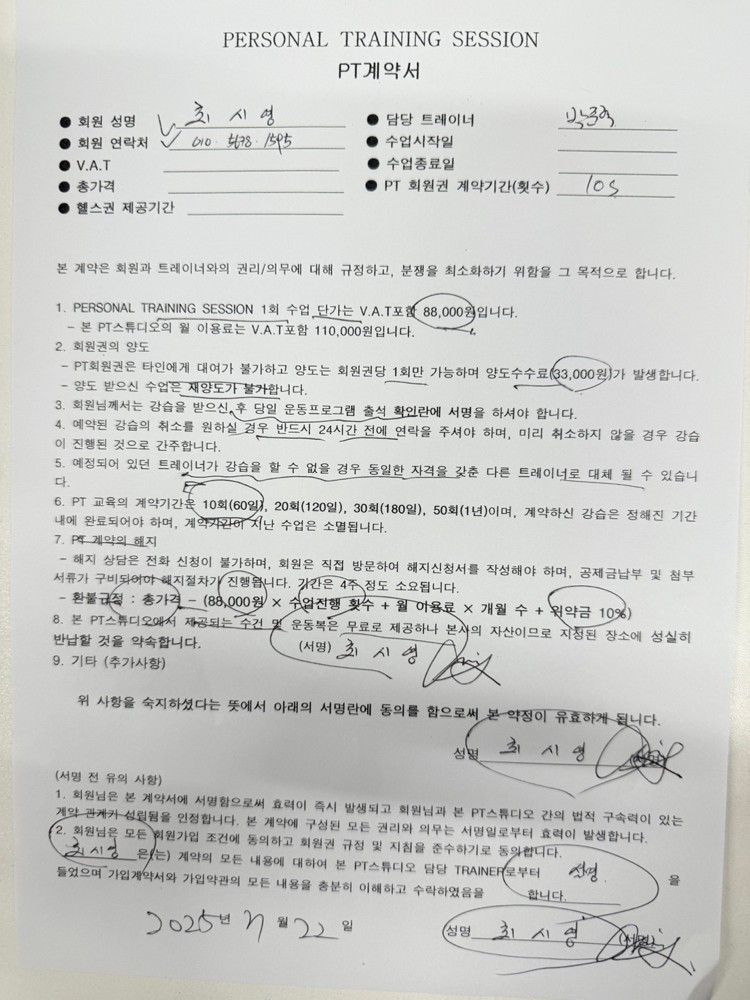 PERSONAL TRAINING SESSION
PT계약서
● 회원 성명 최 시 영
● 담당 트레이너
● 회원 연락처 010 · 5678 · 1595
● 수업시작일
● V.A.T
● 수업종료일
● 총가격
● PT 회원권 계약기간(횟수) 10s
● 헬스권 제공기간
본 계약은 회원과 트레이너와의 권리/의무에 대해 규정하고, 분쟁을 최소화하기 위함을 그 목적으로 합니다.
1. PERSONAL TRAINING SESSION 1회 수업 단가는 V.A.T포함 88,000원입니다.
– 본 PT스튜디오의 월 이용료는 V.A.T포함 110,000원입니다.
2. 회원권의 양도
– PT회원권은 타인에게 대여가 불가하고 양도는 회원권당 1회만 가능하며 양도수수료(33,000원)가 발생합니다.
– 양도 받으신 수업은 재양도가 불가합니다.
3. 회원님께서는 강습을 받으신 후 당일 운동프로그램 출석 확인란에 서명을 하셔야 합니다.
4. 예약된 강습의 취소를 원하실 경우 반드시 24시간 전에 연락을 주셔야 하며, 미리 취소하지 않을 경우 강습
이 진행된 것으로 간주합니다.
5. 예정되어 있던 트레이너가 강습을 할 수 없을 경우 동일한 자격을 갖춘 다른 트레이너로 대체 될 수 있습니
다.
6. PT 교육의 계약기간은 10회(60일), 20회(120일), 30회(180일), 50회(1년)이며, 계약하신 강습은 정해진 기간
내에 완료되어야 하며, 계약기간이 지난 수업은 소멸됩니다.
7. PT 계약의 해지
– 해지 상담은 전화 신청이 불가하며, 회원은 직접 방문하여 해지신청서를 작성해야 하며, 공제금납부 및 첨부
서류가 구비되어야 해지절차가 진행됩니다. 기간은 4주 정도 소요됩니다.
– 환불규정 : 총가격 – (88,000원 × 수업진행 횟수 + 월 이용료 × 개월 수 + 위약금 10%)
8. 본 PT스튜디오에서 제공되는 수건 및 운동복은 무료로 제공하나 본사의 자산이므로 지정된 장소에 성실히
반납할 것을 약속합니다.
(서명) 최 시 영
9. 기타 (추가사항)
위 사항을 숙지하셨다는 뜻에서 아래의 서명란에 동의를 함으로써 본 약정이 유효하게 됩니다.
성명 최 시 영
(서명 전 유의 사항)
1. 회원님은 본 계약서에 서명함으로써 효력이 즉시 발생되고 회원님과 본 PT스튜디오 간의 법적 구속력이 있는
계약 관계가 성립됨을 인정합니다. 본 계약에 구성된 모든 권리와 의무는 서명일로부터 효력이 발생합니다.
2. 회원님은 모든 회원가입 조건에 동의하고 회원권 규정 및 지침을 준수하기로 동의합니다.
최시영 은(는) 계약의 모든 내용에 대하여 본 PT스튜디오 담당 TRAINER로부터 설명 을
들었으며 가입계약서와 가입약관의 모든 내용을 충분히 이해하고 수락하였음을 합니다.
2025년 월 22 일
성명 최 시 영 (서명)